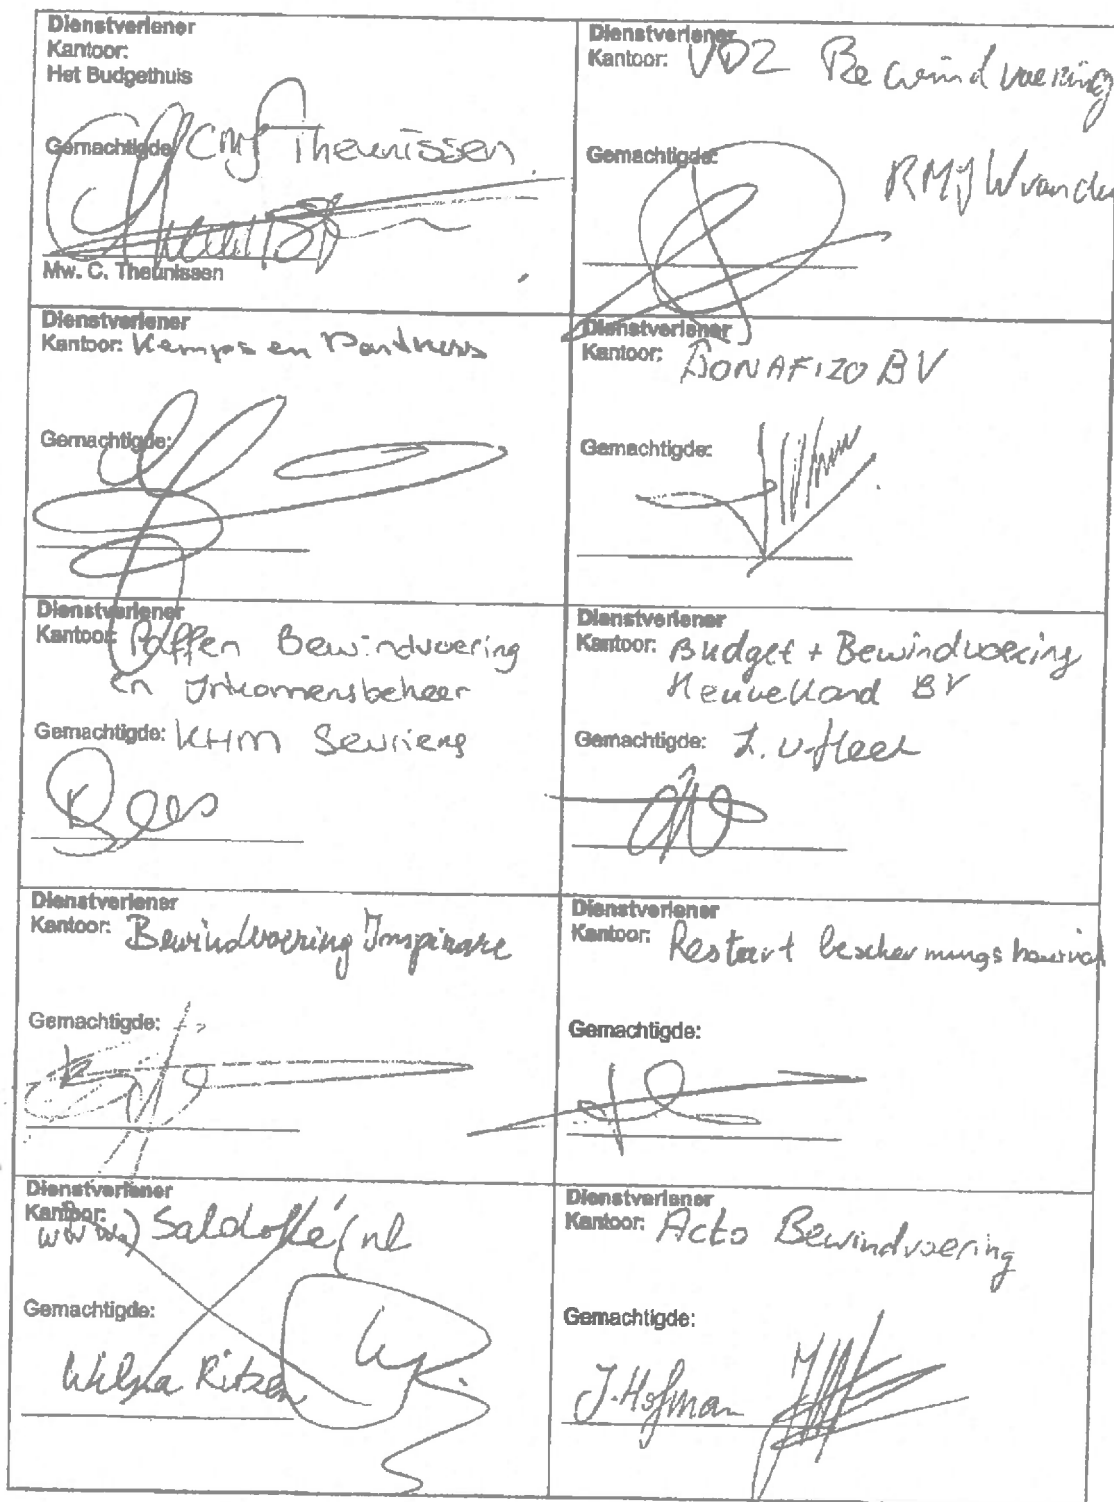 Dienstverlener
Kantoor:
Het Budgethuis
Gemachtigde CMJ Theunissen
Mw. C. Theunissen
Dienstverlener
Kantoor: VDZ Bewindvoering
Gemachtigde:
RMJ W van de
Dienstverlener
Kantoor: Kemps en Partners
Gemachtigde:
Dienstverlener
Kantoor: BONAFIZO BV
Gemachtigde:
Dienstverlener
Kantoor: Paffen Bewindvoering
en Inkomensbeheer
Gemachtigde: KHM
Dienstverlener
Kantoor: Budget + Bewindvoering
Heuvelland BV
Gemachtigde:
Dienstverlener
Kantoor: Bewindvoering Inspirare
Gemachtigde:
Dienstverlener
Kantoor: Restart beschermingsbewind
Gemachtigde:
Dienstverlener
Kantoor:
Saldoké nl
Gemachtigde:
Wilma Ritzen
Dienstverlener
Kantoor: Acto Bewindvoering
Gemachtigde:
J. Hofman